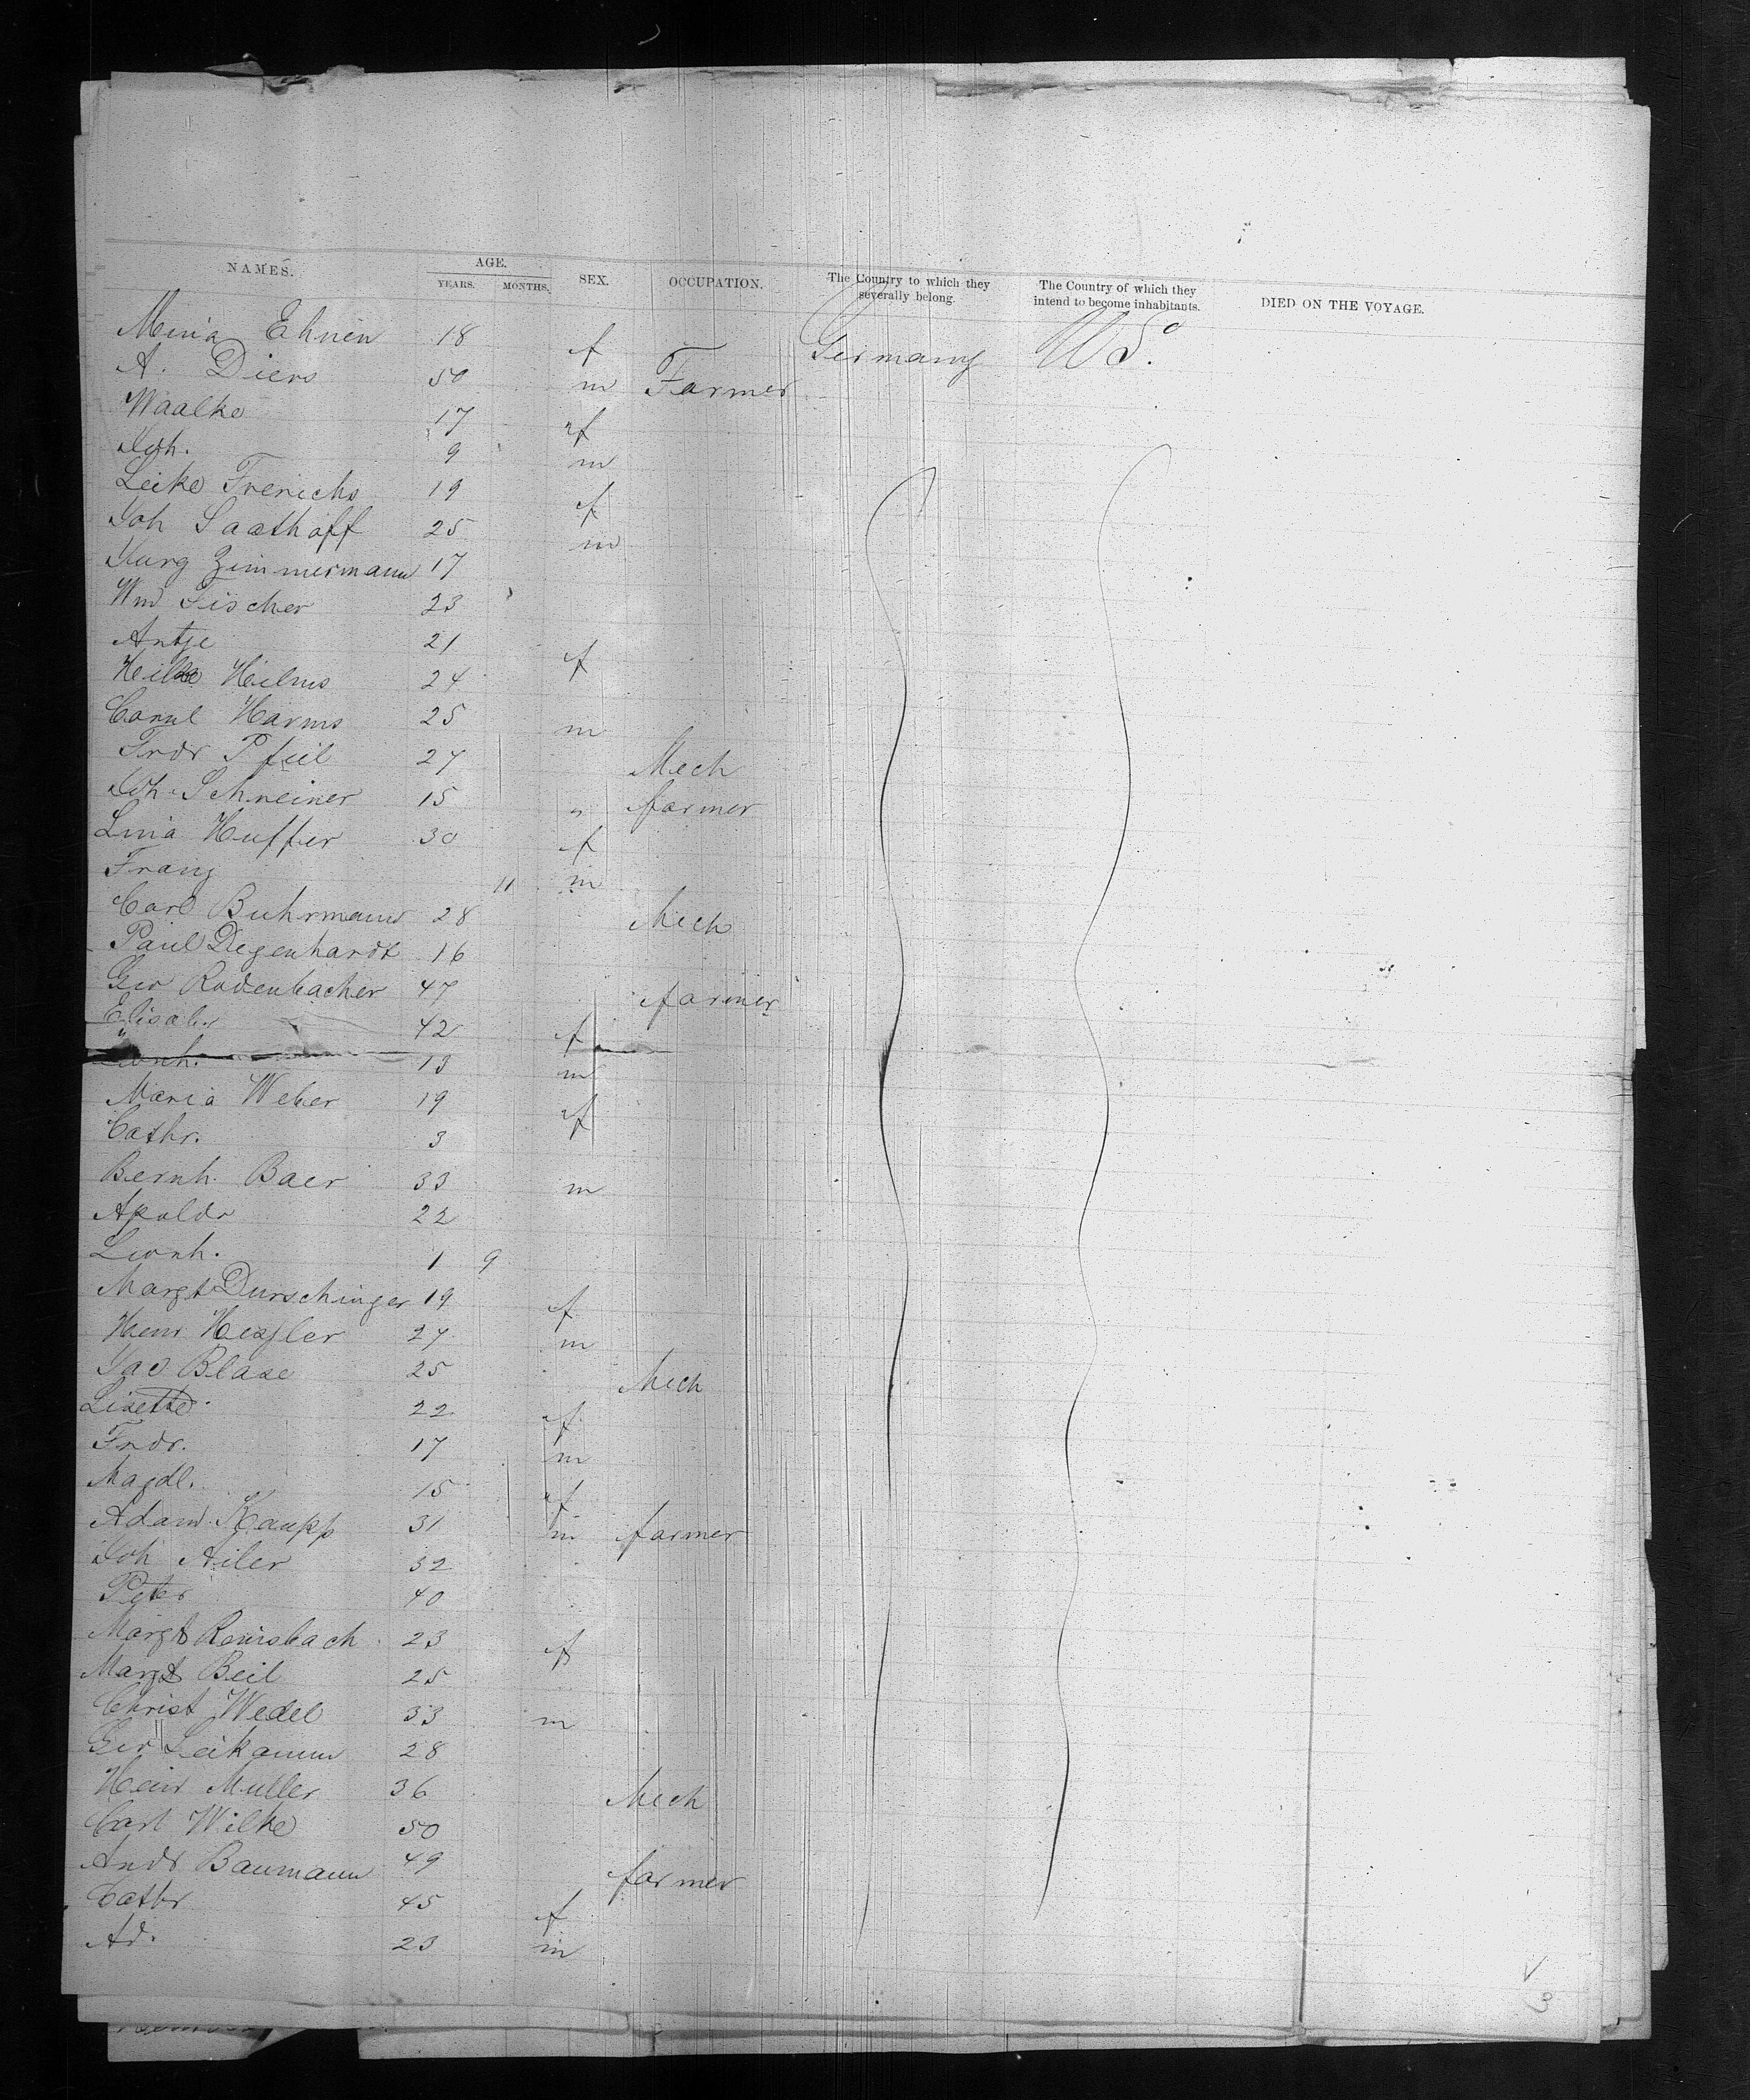 NAMES. AGE. SEX. OCCUPATION. The Country to which they severally belong. The Country of which they intend to become inhabitants. DIED ON THE VOYAGE.
YEARS. MONTHS.
Mina Ehnen 18 f Germany U S.
A. Diers 50 m Farmer
Waalke 17 f
Joh. 9 m
Leike Frerichs 19 f
Joh Saathoff 25 m
Jurg Zimmermann 17
Wm Fischer 23
Antje 21 f
Heilke Heilms 24
Carul Harms 25 m
Fredr Pfeil 27 Mech
Joh. Schreiner 15 " farmer
Lina Huffer 30 f
Franz 11 m
Carl Buhrmann 28 Mech
Paul Degenhardt 16
Geo Rodenbacher 47 farmer
Elisab. 42 f
Leonh. 13 m
Maria Weber 19 f
Cathr. 3
Bernh. Baer 33 m
Apoldr 22
Leonh. 1 9
Margt Durschinger 19 f
Henr Hegler 27 m
Jac Blase 25 Mech
Lisette 22 f
Fredr. 17 m
Magdl. 15 f
Adam Kaupp 31 m farmer
Joh Ailer 32
Peter 40
Margt Romsbach 23 f
Margt Beil 25
Christ Wedel 33 m
Geo Leikamm 28
Heinr Muller 36 Mech
Carl Wilke 50
Andr Baumann 49 farmer
Cathr 45 f
Ad. 23 m
3